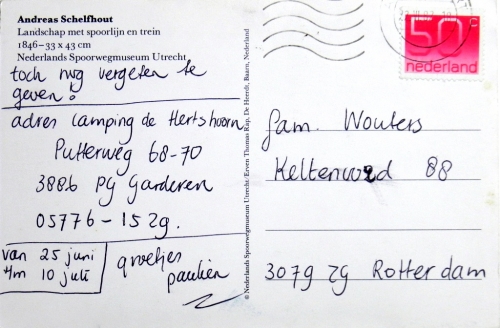 Andreas Schelfhout
Landschap met spoorlijn en trein
1846–33 x 43 cm
Nederlands Spoorwegmuseum Utrecht
toch nog vergeten te
geven!
adres camping de Hertshoorn
Putterweg 68-70
3886 PG Garderen
05776-1529.
van 25 juni
t/m 10 juli
groetjes
paulien
© Nederlands Spoorwegmuseum Utrecht/Erven Thomas Rap, De Heerdt, Baarn, Nederland
50 c
nederland
fam. Wouters
Keltenoord 88
3079 zg Rotterdam